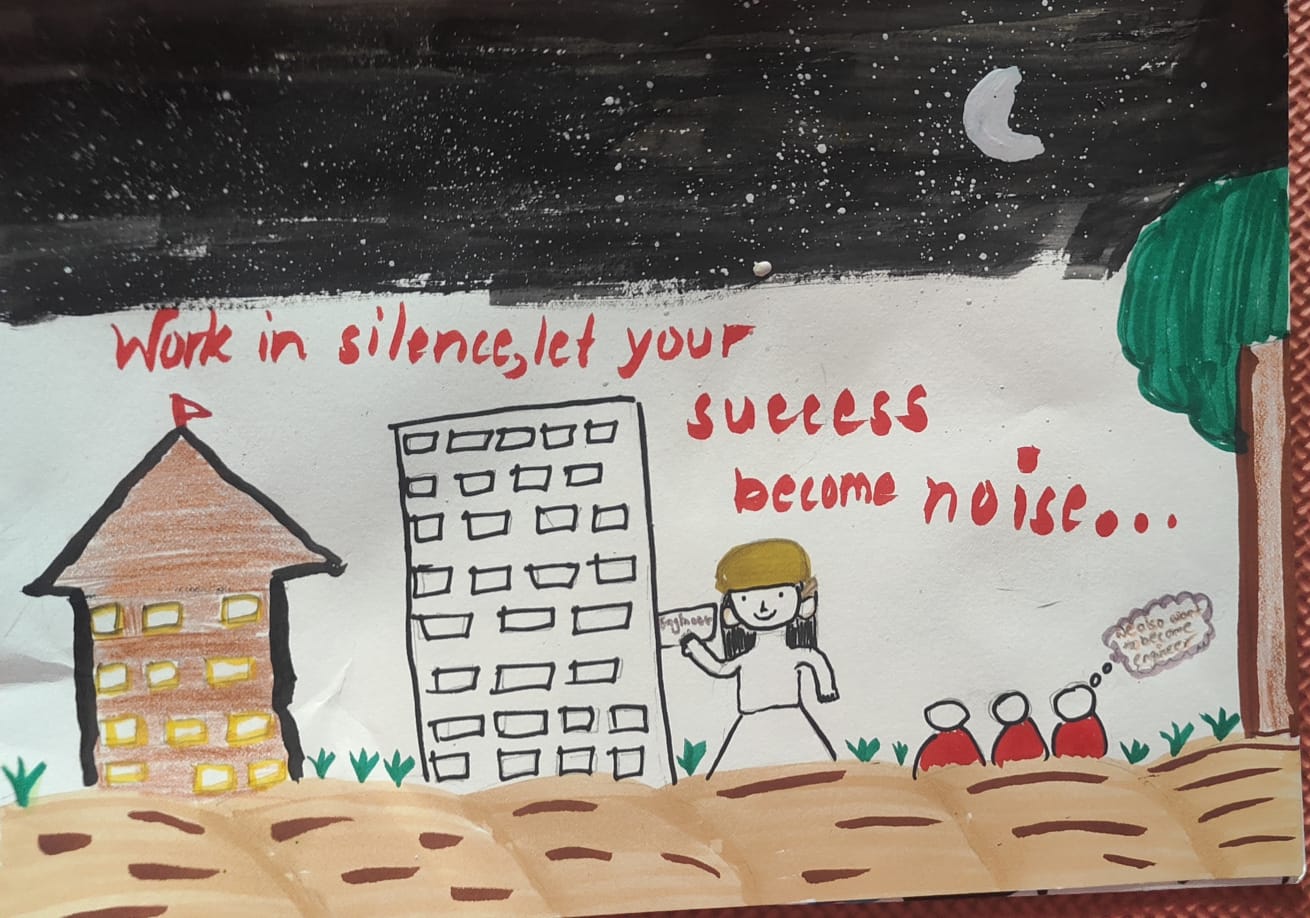 Work in silence, let your
success
become noise...
Engineer
We also want
to become
engineer